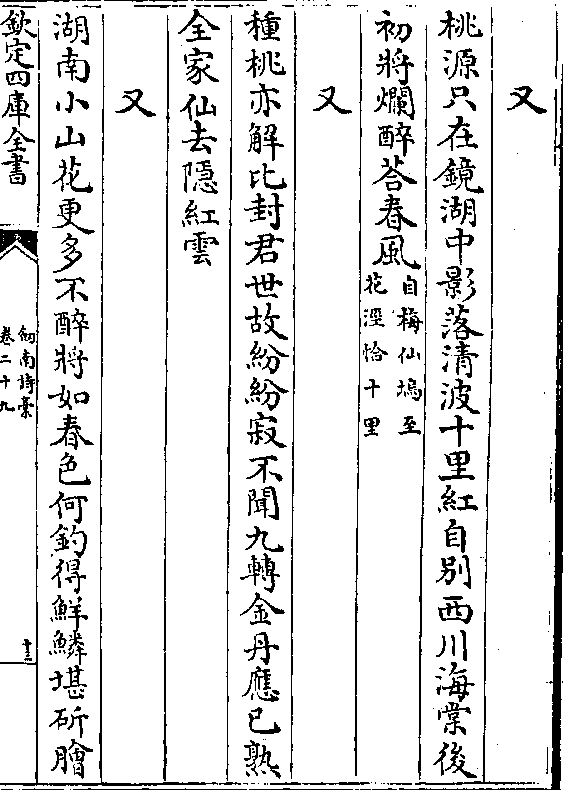 又
桃源只在鏡湖中影落清波十里紅自别西川海棠後
初將爛醉荅春風自梅仙塢至
花涇恰十里
又
種桃亦解比封君世故紛紛寂不聞九轉金丹應已熟
全家仙去隱紅雲
又
湖南小山花更多不醉將如春色何釣得鮮鱗堪斫膾
欽定四庫全書
劒南詩稾
卷二十九
十三